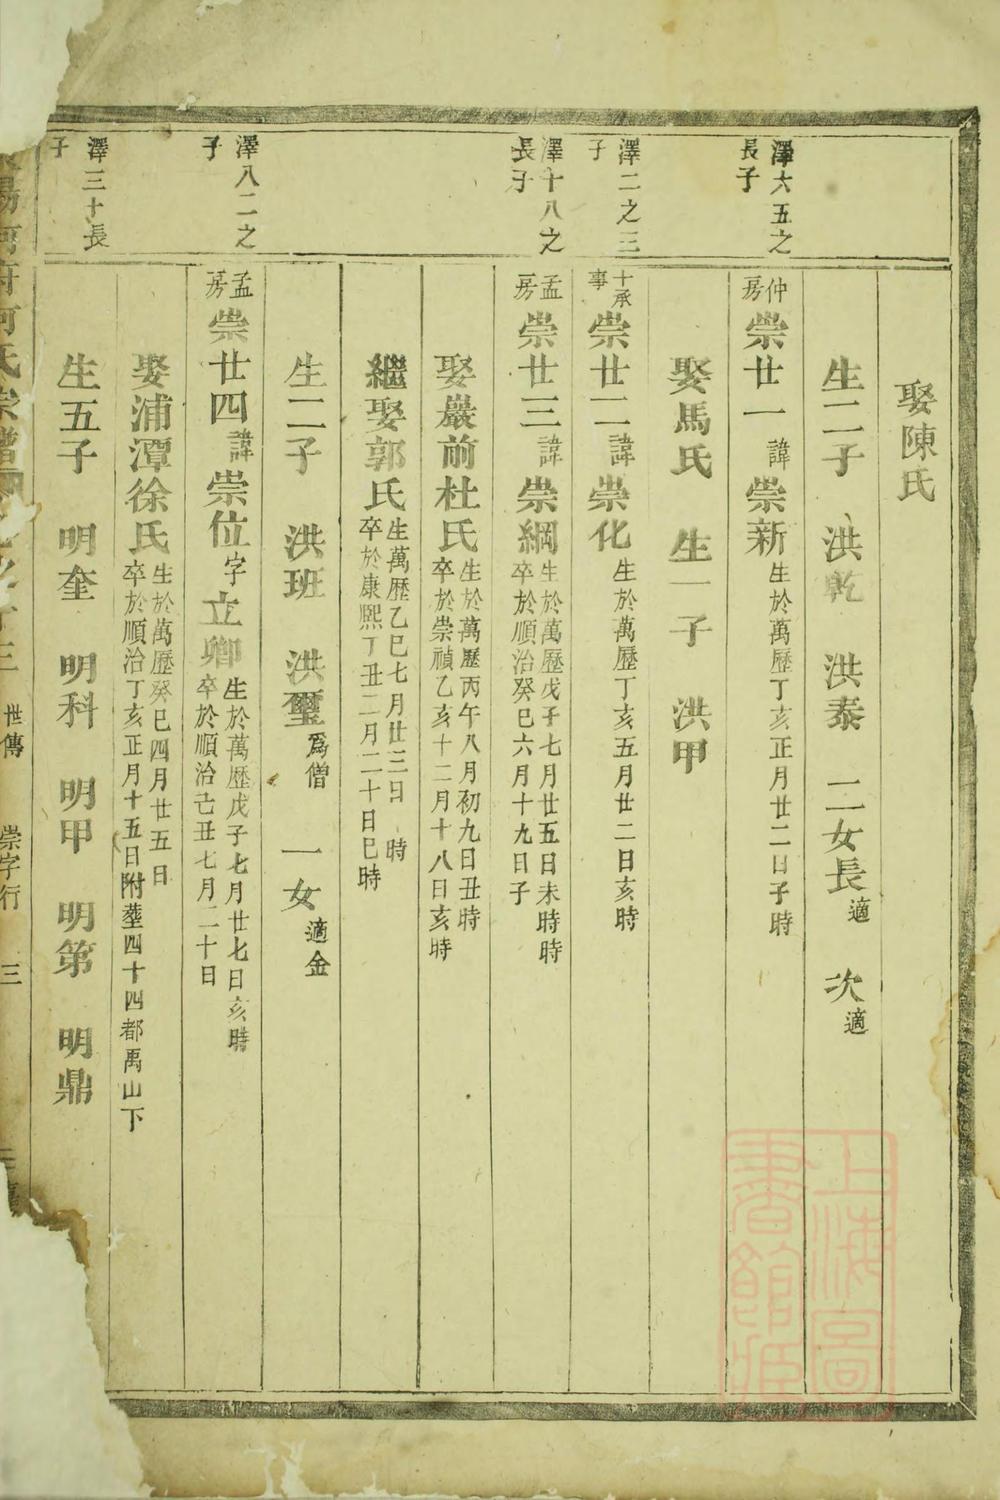 娶陳氏
生二子 洪乾 洪泰 二女長適 次適
澤六五之
長子
仲房崇廿一諱崇新生於萬歷丁亥正月廿二日子時
娶馬氏 生一子 洪甲
澤二之三
子
十承事崇廿二諱崇化生於萬歷丁亥五月廿二日亥時
澤十八之
長子
孟房崇廿三諱崇綱生於萬歷戊子七月廿五日未時時
卒於順治癸巳六月十九日子
娶巖前杜氏生於萬歷丙午八月初九日丑時
卒於崇禎乙亥十二月十八日亥時
繼娶郭氏生萬歷乙巳七月廿三日 時
卒於康熙丁丑二月二十日巳時
生二子 洪班 洪璽為僧 一女適金
澤八二之
子
孟房崇廿四諱崇位字立卿生於萬歷戊子七月廿七日亥時
卒於順治己丑七月二十日
娶浦潭徐氏生於萬歷癸巳四月廿五日
卒於順治丁亥正月十五日附塟四十四都禹山下
澤三十長
子
生五子 明奎 明科 明甲 明第 明鼎
世傳 崇字行 三
上海圖
書館藏